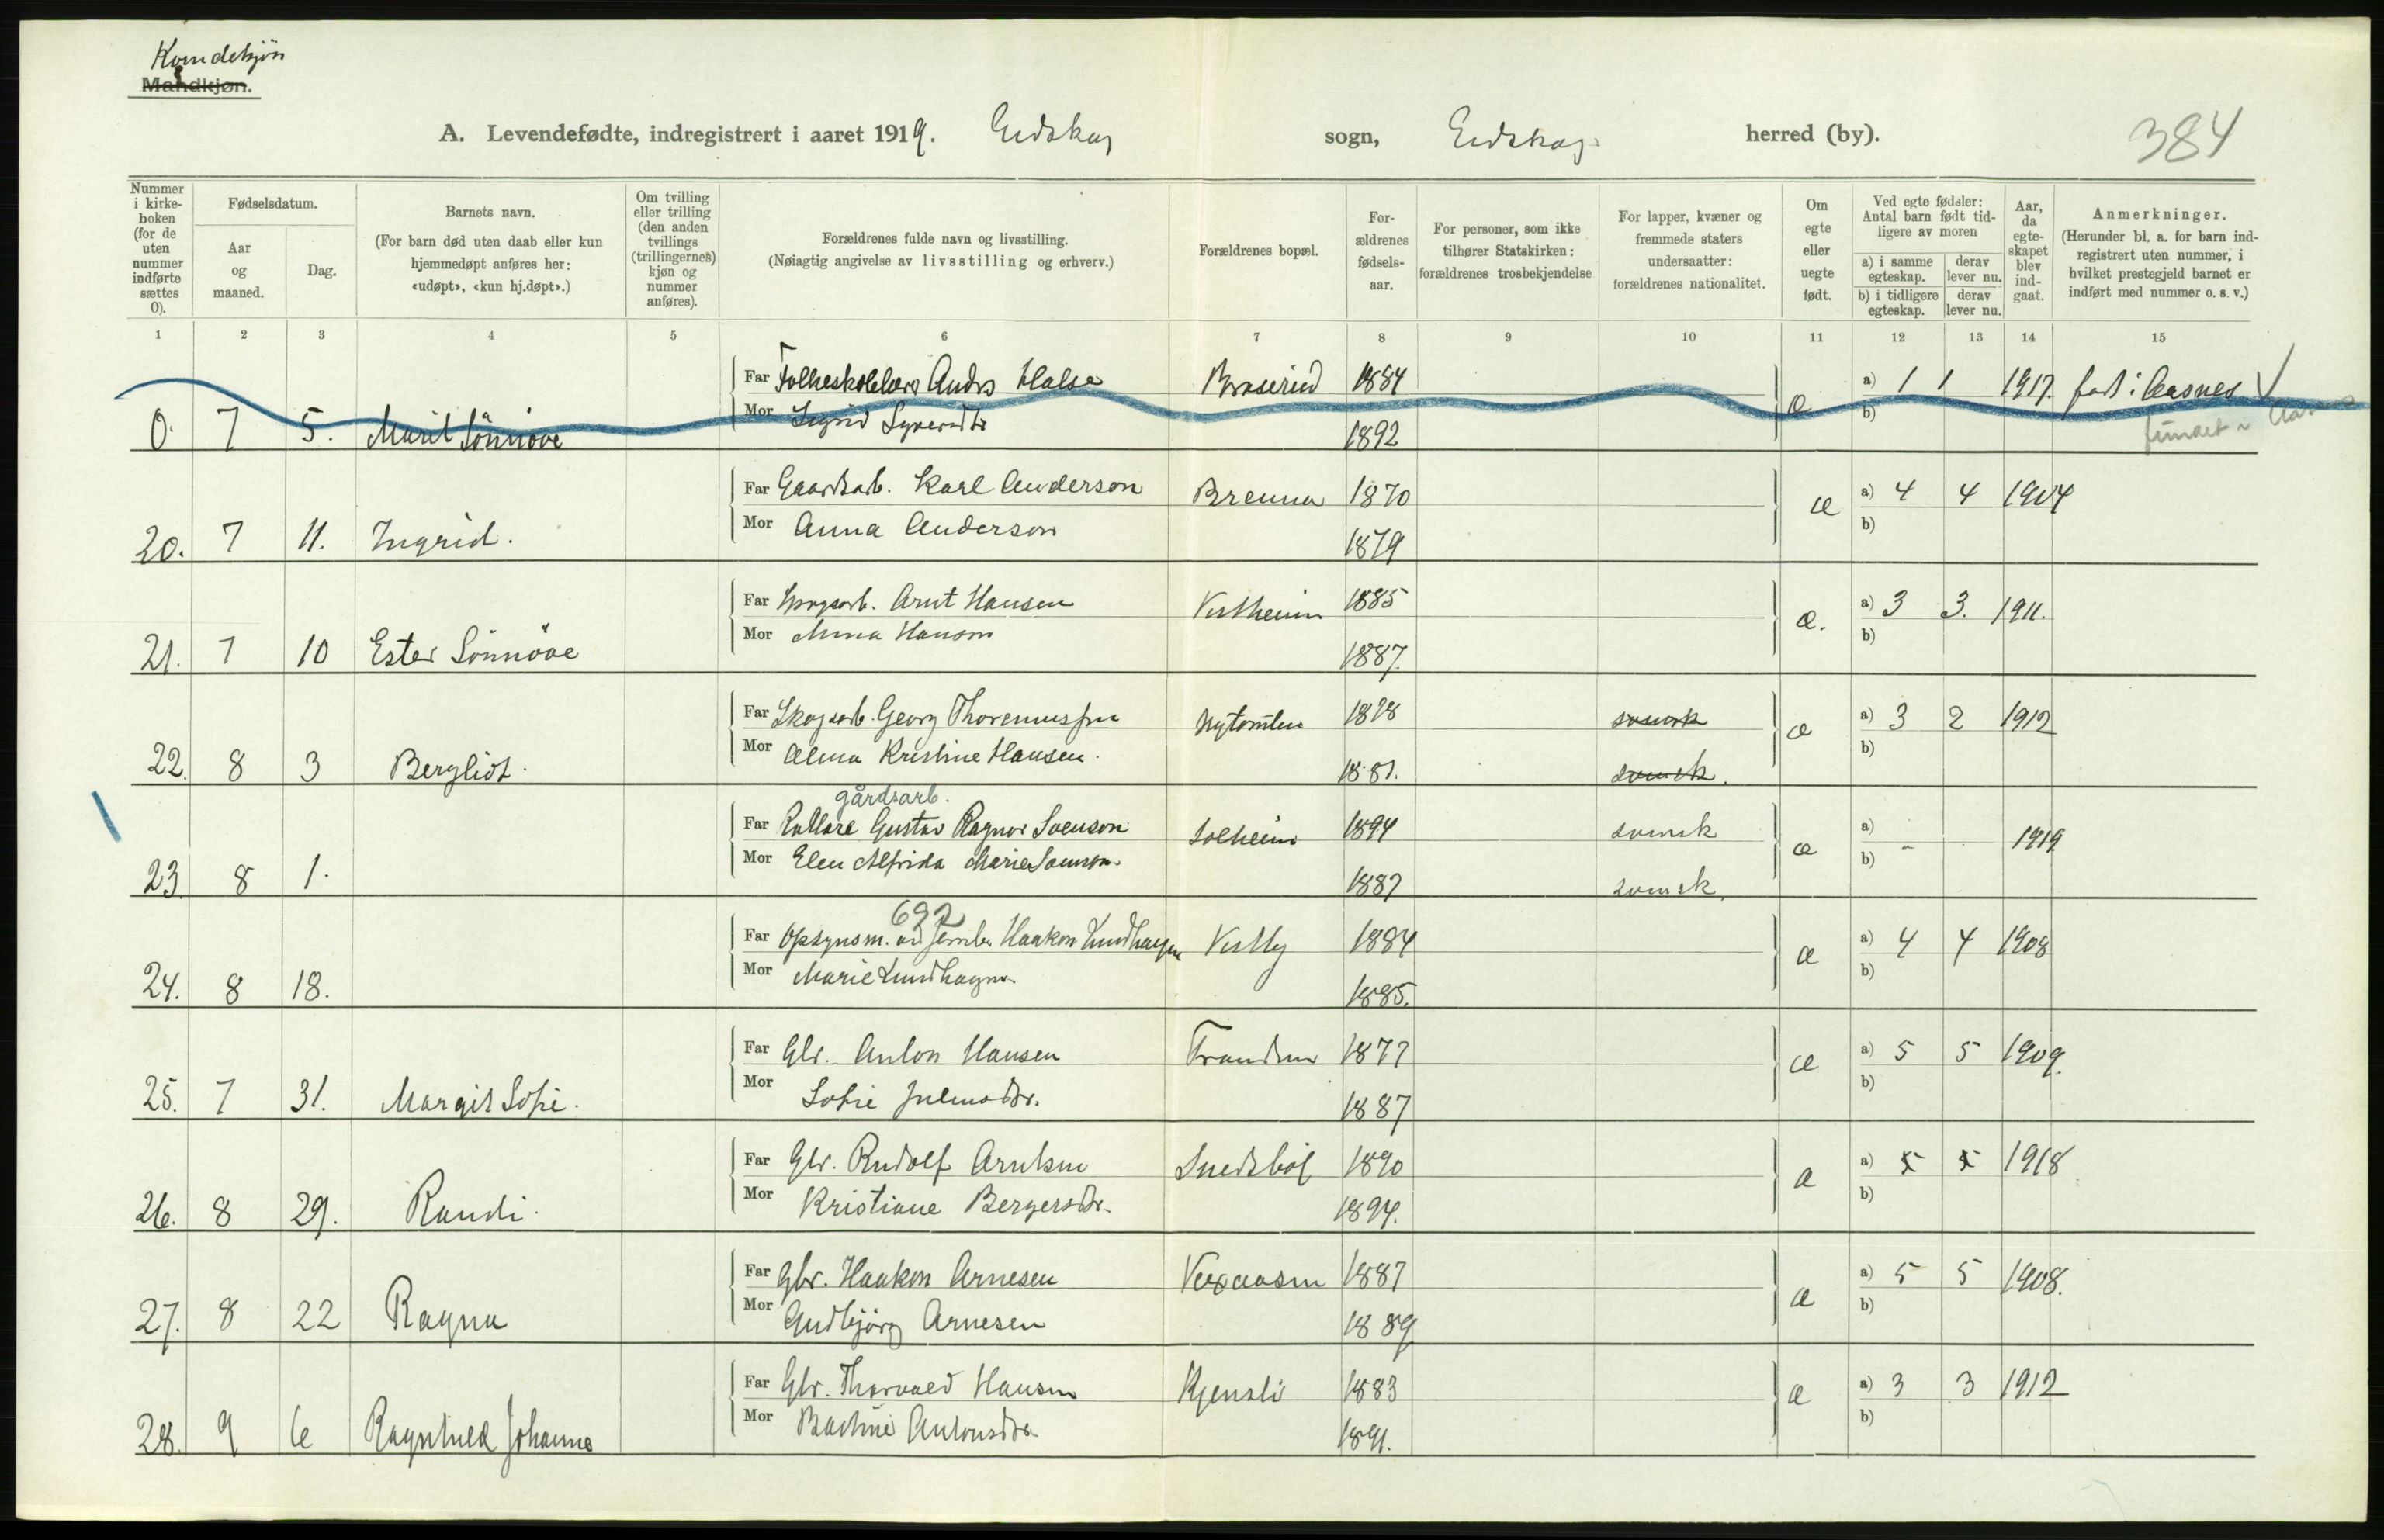 Kvindekjøn
Mandkjøn.
A. Levendefødte, indregistrert i aaret 1919. Eidskog sogn, Eidskog herred (by). 384
Nummer i kirke- boken (for de uten nummer indførte sættes 0).
Fødselsdatum.
Aar og maaned.
Dag.
Barnets navn.
(For barn død uten daab eller kun hjemmedøpt anføres her: «udøpt», «kun hj.døpt».)
Om tvilling eller trilling (den anden tvillings (trillingernes) kjøn og nummer anføres).
Forældrenes fulde navn og livsstilling.
(Nøiagtig angivelse av livsstilling og erhverv.)
Forældrenes bopæl.
For- ældrenes fødsels- aar.
For personer, som ikke tilhører Statskirken: forældrenes trosbekjendelse
For lapper, kvæner og fremmede staters undersaatter: forældrenes nationalitet.
Om egte eller uegte født.
Ved egte fødsler: Antal barn født tid- ligere av moren
a) i samme egteskap. derav lever nu.
b) i tidligere egteskap. derav lever nu.
Aar, da egte- skapet blev ind- gaat.
Anmerkninger.
(Herunder bl. a. for barn ind- registrert uten nummer, i hvilket prestegjeld barnet er indført med nummer o. s. v.)
1 2 3 4 5 6 7 8 9 10 11 12 13 14 15
Far Folkeskolelærer Anders Halse 1884 a) 1 1 1917. født i Aasnes
0. 7 5. Marit Sönnöve Mor Sigrid 1892 æ b)
Far Gaardsarb. Karl Anderson Brenna 1870 æ a) 4 4 1904
20. 7 11. Ingrid. Mor Anna Anderson 1879 b)
Far Skogsarb. Arnt Hansen Vestheim 1885 æ. a) 3 3. 1911.
21. 7 10 Ester Sönnöve Mor Anna Hansen 1887. b)
Far Skogsarb. Georg 1878 svensk æ a) 3 2 1912
22. 8 3 Bergliot. Mor Alma Kristine Hansen. 1881. svensk. b)
gårdsarb.
Far Gustav Ragnar Svenson Solheim 1894 svensk æ a) 1919
23 8 1. Mor Elen Alfrida Marie Svenson. 1887 svensk. b) -
692
Far Opsynsm. ved jernb. Haakon Lundhagen Vestby 1884 æ a) 4 4 1908
24. 8 18. Mor Marie Lundhagen 1885. b)
Far Gbr. Anton Hansen 1877 æ a) 5 5 1909.
25. 7 31. Margit Sofie. Mor Sofie Juliusdtr. 1887 b)
Far Gbr. Rudolf Arntsen Snedsböl 1890 æ a) 1918
26. 8 29. Randi. Mor Kristiane Bergersdtr. 1894. b)
Far Gbr. Haakon Arnesen 1887 æ a) 5 5 1908.
27. 8 22 Ragna Mor Gudbjörg Arnesen 1889 b)
Far Gbr. Thorvald Hansen Kjensli 1883 æ a) 3 3 1912
28. 9 6 Ragnhild Johanne Mor Antonsdtr. 1891. b)